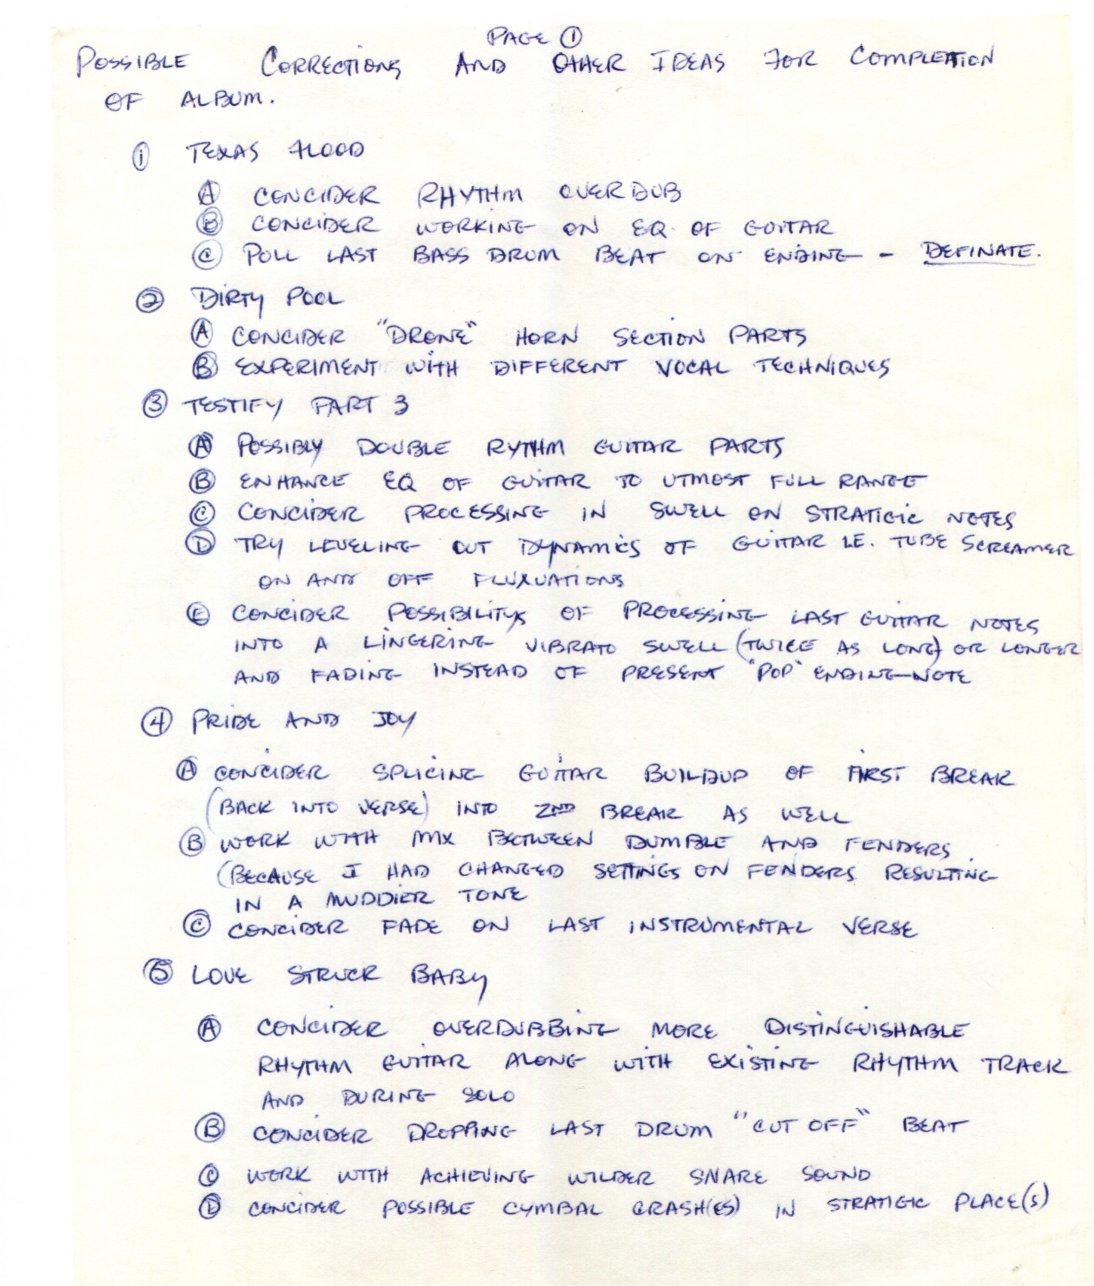 PAGE ①
POSSIBLE CORRECTIONS AND OTHER IDEAS FOR COMPLETION
OF ALBUM.
① TEXAS FLOOD
Ⓐ CONCIDER RHYTHM OVERDUB
Ⓑ CONCIDER WORKING ON EQ. OF GUITAR
Ⓒ PULL LAST BASS DRUM BEAT ON ENDING - DEFINATE.
② DIRTY POOL
Ⓐ CONCIDER "DRONE" HORN SECTION PARTS
Ⓑ EXPERIMENT WITH DIFFERENT VOCAL TECHNIQUES
③ TESTIFY PART 3
Ⓐ POSSIBLY DOUBLE RYTHM GUITAR PARTS
Ⓑ ENHANCE EQ OF GUITAR TO UTMOST FULL RANGE
Ⓒ CONCIDER PROCESSING IN SWELL ON STRATIGIC NOTES
Ⓓ TRY LEVELING OUT DYNAMICS OF GUITAR I.E. TUBE SCREAMER
ON AND OFF FLUXUATIONS
Ⓔ CONCIDER POSSIBILITYS OF PROCESSING LAST GUITAR NOTES
INTO A LINGERING VIBRATO SWELL (TWICE AS LONG) OR LONGER
AND FADING INSTEAD OF PRESENT "POP" ENDING-NOTE
④ PRIDE AND JOY
Ⓐ CONCIDER SPLICING GUITAR BUILDUP OF FIRST BREAK
(BACK INTO VERSE) INTO 2ND BREAK AS WELL
Ⓑ WORK WITH MIX BETWEEN DUMBLE AND FENDERS.
(BECAUSE I HAD CHANGED SETTINGS ON FENDERS RESULTING
IN A MUDDIER TONE
Ⓒ CONCIDER FADE ON LAST INSTRUMENTAL VERSE
⑤ LOVE STRUCK BABY
Ⓐ CONCIDER OVERDUBBING MORE DISTINGUISHABLE
RHYTHM GUITAR ALONG WITH EXISTING RHYTHM TRACK
AND DURING SOLO
Ⓑ CONCIDER DROPPING LAST DRUM "CUT OFF" BEAT
Ⓒ WORK WITH ACHIEVING WILDER SNARE SOUND
Ⓓ CONCIDER POSSIBLE CYMBAL CRASH(ES) IN STRATIGIC PLACE(S)